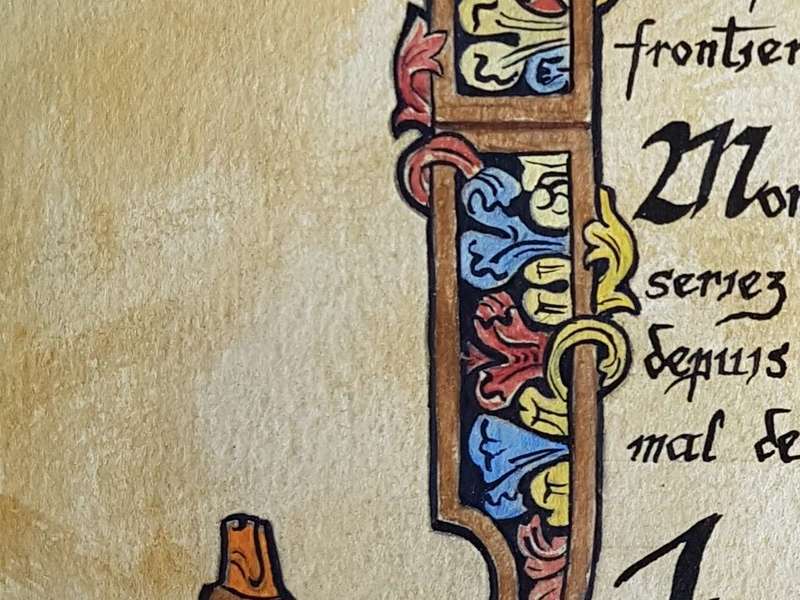 frontier
Mon
seriez
depuis
mal de